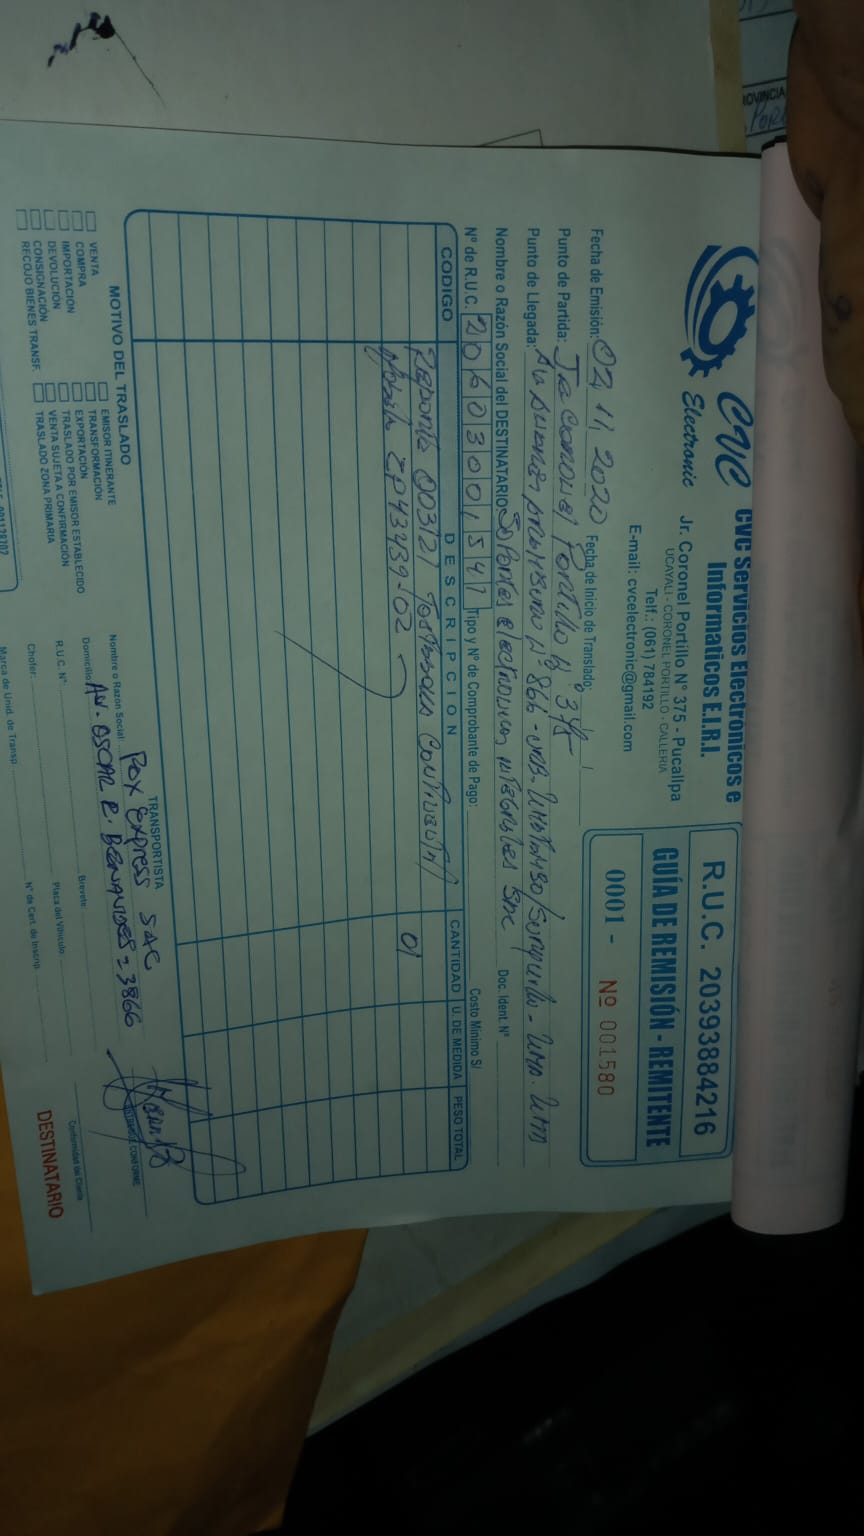 CVC
Electronic
CVC Servicios Electrónicos e
Informaticos E.I.R.L.
Jr. Coronel Portillo N° 375 - Pucallpa
UCAYALI - CORONEL PORTILLO - CALLERIA
Telf.: (061) 784192
E-mail: cvcelectronic@gmail.com
R.U.C. 20393884216
GUÍA DE REMISIÓN - REMITENTE
0001 - Nº 001580
Fecha de Emisión: 02, 11, 2020 Fecha de Inicio de Translado:
Punto de Partida: Jr Coronel Portillo N° 375
Punto de Llegada: N° 866 - Lima
Nombre o Razón Social del DESTINATARIO Soportes electronicos integrales Doc. Ident. N°
N° de R.U.C. 20603001541 Tipo y N° de Comprobante de Pago: Costo Mínimo S/
CODIGO DESCRIPCION CANTIDAD U. DE MEDIDA PESO TOTAL
Reporte 003121 01
ZP43439-02
MOTIVO DEL TRASLADO
VENTA
COMPRA
IMPORTACIÓN
DEVOLUCIÓN
CONSIGNACIÓN
RECOJO BIENES TRANSF.
EMISOR ITINERANTE
TRANSFORMACIÓN
EXPORTACIÓN
TRASLADO POR EMISOR ESTABLECIDO
VENTA SUJETA A CONFIRMACIÓN
TRASLADO ZONA PRIMARIA
TRANSPORTISTA
Nombre o Razón Social: Pox Express SAC
Domicilio: AV. OSCAR R. BENAVIDES - 3866
R.U.C. N°: Brevete:
Chofer: Placa del Vihículo:
Marca de Unid. de Transp. N° de Cert. de Inscrip.
CONFORME
Conformidad del Cliente
DESTINATARIO